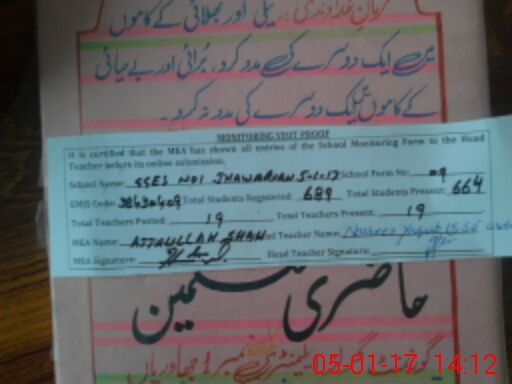 فرمانِ خداوندی:۔ نیکی اور بھلائی کے کاموں
میں ایک دوسرے کی مدد کرو، بُرائی اور بے حیائی
کے کاموں میں ایک دوسرے کی مدد نہ کرو۔
MONITORING VISIT PROOF
It is certified that the MEA has shown all entries of the School Monitoring Form to the Head
Teacher before its online submission.
School Name: GGES NO1 JHAWARIAN 5-1-17 School Form No: 09
EMIS Code: 38430409 Total Students Registered: 689 Total Students Present: 664
Total Teachers Posted: 19 Total Teachers Present: 19
MEA Name: ATTAULLAH SHAH Head Teacher Name:
MEA Signature: Head Teacher Signature:
حاضری معلمین
گورنمنٹ گرلز ایلیمنٹری نمبر 1 جھاوریاں
05-01-17 14:12